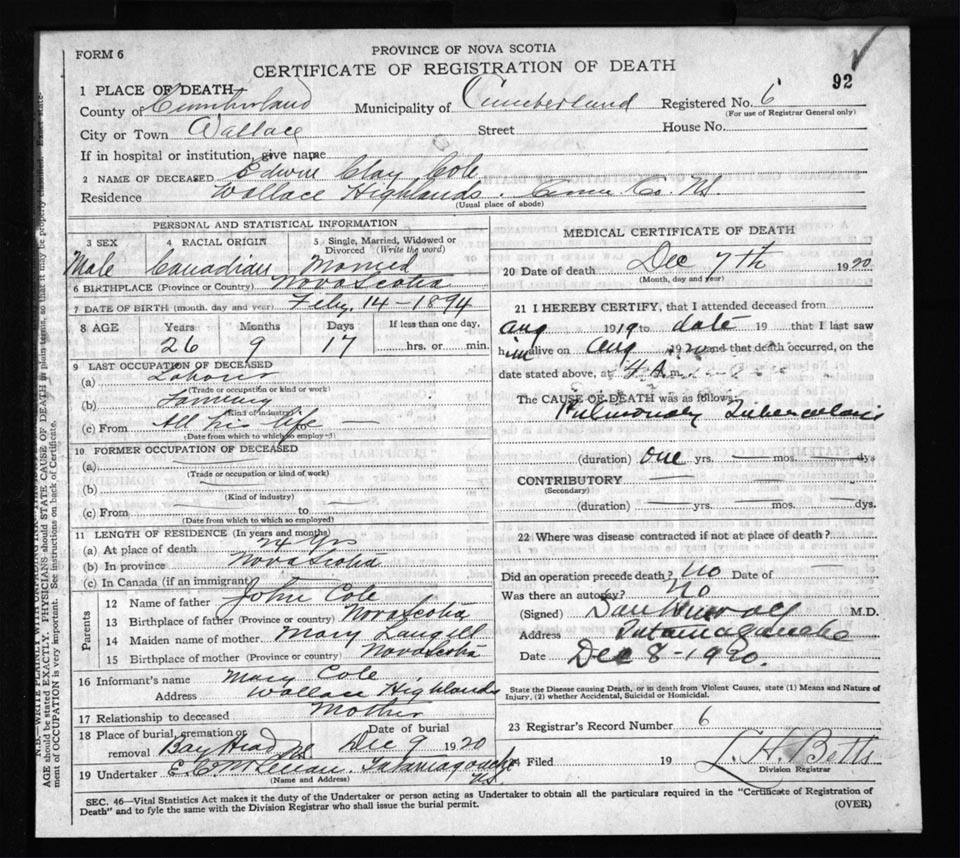 FORM 6
PROVINCE OF NOVA SCOTIA
CERTIFICATE OF REGISTRATION OF DEATH
92
1 PLACE OF DEATH
County of Cumberland Municipality of Cumberland Registered No. 6
(For use of Registrar General only)
City or Town Wallace Street House No.
If in hospital or institution, give name
2 NAME OF DECEASED Edwin Clay Cole
Residence Wallace Highlands. Cum Co. NS.
(Usual place of abode)
PERSONAL AND STATISTICAL INFORMATION
3 SEX 4 RACIAL ORIGIN 5 Single, Married, Widowed or Divorced (Write the word)
Male Canadian Married
6 BIRTHPLACE (Province or Country) Nova Scotia
7 DATE OF BIRTH (month, day and year) Feby. 14 - 1894
8 AGE Years Months Days If less than one day,
26 9 17 hrs. or min.
9 LAST OCCUPATION OF DECEASED
(a) Labour
(Trade or occupation or kind or work)
(b) Farming
(Kind of industry)
(c) From All his life
(Date from which to which so employed)
10 FORMER OCCUPATION OF DECEASED
(a)
(Trade or occupation or kind of work)
(b)
(Kind of industry)
(c) From to
(Date from which to which so employed)
11 LENGTH OF RESIDENCE (In years and months)
(a) At place of death 24 yrs
(b) In province Nova Scotia
(c) In Canada (if an immigrant)
Parents
12 Name of father John Cole
13 Birthplace of father (Province or country) Nova Scotia
14 Maiden name of mother Mary Langill
15 Birthplace of mother (Province or country) Nova Scotia
16 Informant's name Mary Cole
Address Wallace Highlands
17 Relationship to deceased Mother
18 Place of burial, cremation or removal Bay Head NS Date of burial Dec 9 1920
19 Undertaker Tatamagouche NS
(Name and Address)
MEDICAL CERTIFICATE OF DEATH
20 Date of death Dec 7th 1920
(Month, day and year)
21 I HEREBY CERTIFY, that I attended deceased from
Aug 1919 to date 19 that I last saw
him alive on Aug 1920 and that death occurred, on the
date stated above, at 4 A m.
The CAUSE OF DEATH was as follows:
Pulmonary Tuberculosis
(duration) One yrs. mos. dys
CONTRIBUTORY
(Secondary)
(duration) yrs. mos. dys.
22 Where was disease contracted if not at place of death?
Did an operation precede death? No Date of
Was there an autopsy? No
(Signed) Dan Murray M.D.
Address Tatamagouche
Date Dec 8 - 1920.
State the Disease causing Death, or in death from Violent Causes, state (1) Means and Nature of
Injury, (2) whether Accidental, Suicidal or Homicidal.
23 Registrar's Record Number 6
24 Filed 19 L. H. Betts
Division Registrar
SEC. 46—Vital Statistics Act makes it the duty of the Undertaker or person acting as Undertaker to obtain all the particulars required in the "Certificate of Registration of
Death" and to fyle the same with the Division Registrar who shall issue the burial permit.
(OVER)
N.B.—WRITE PLAINLY WITH UNFADING INK
AGE should be stated EXACTLY. PHYSICIANS should STATE CAUSE OF DEATH in plain terms, so that it may be properly
ment of OCCUPATION is very important. See instructions on back of Certificate.